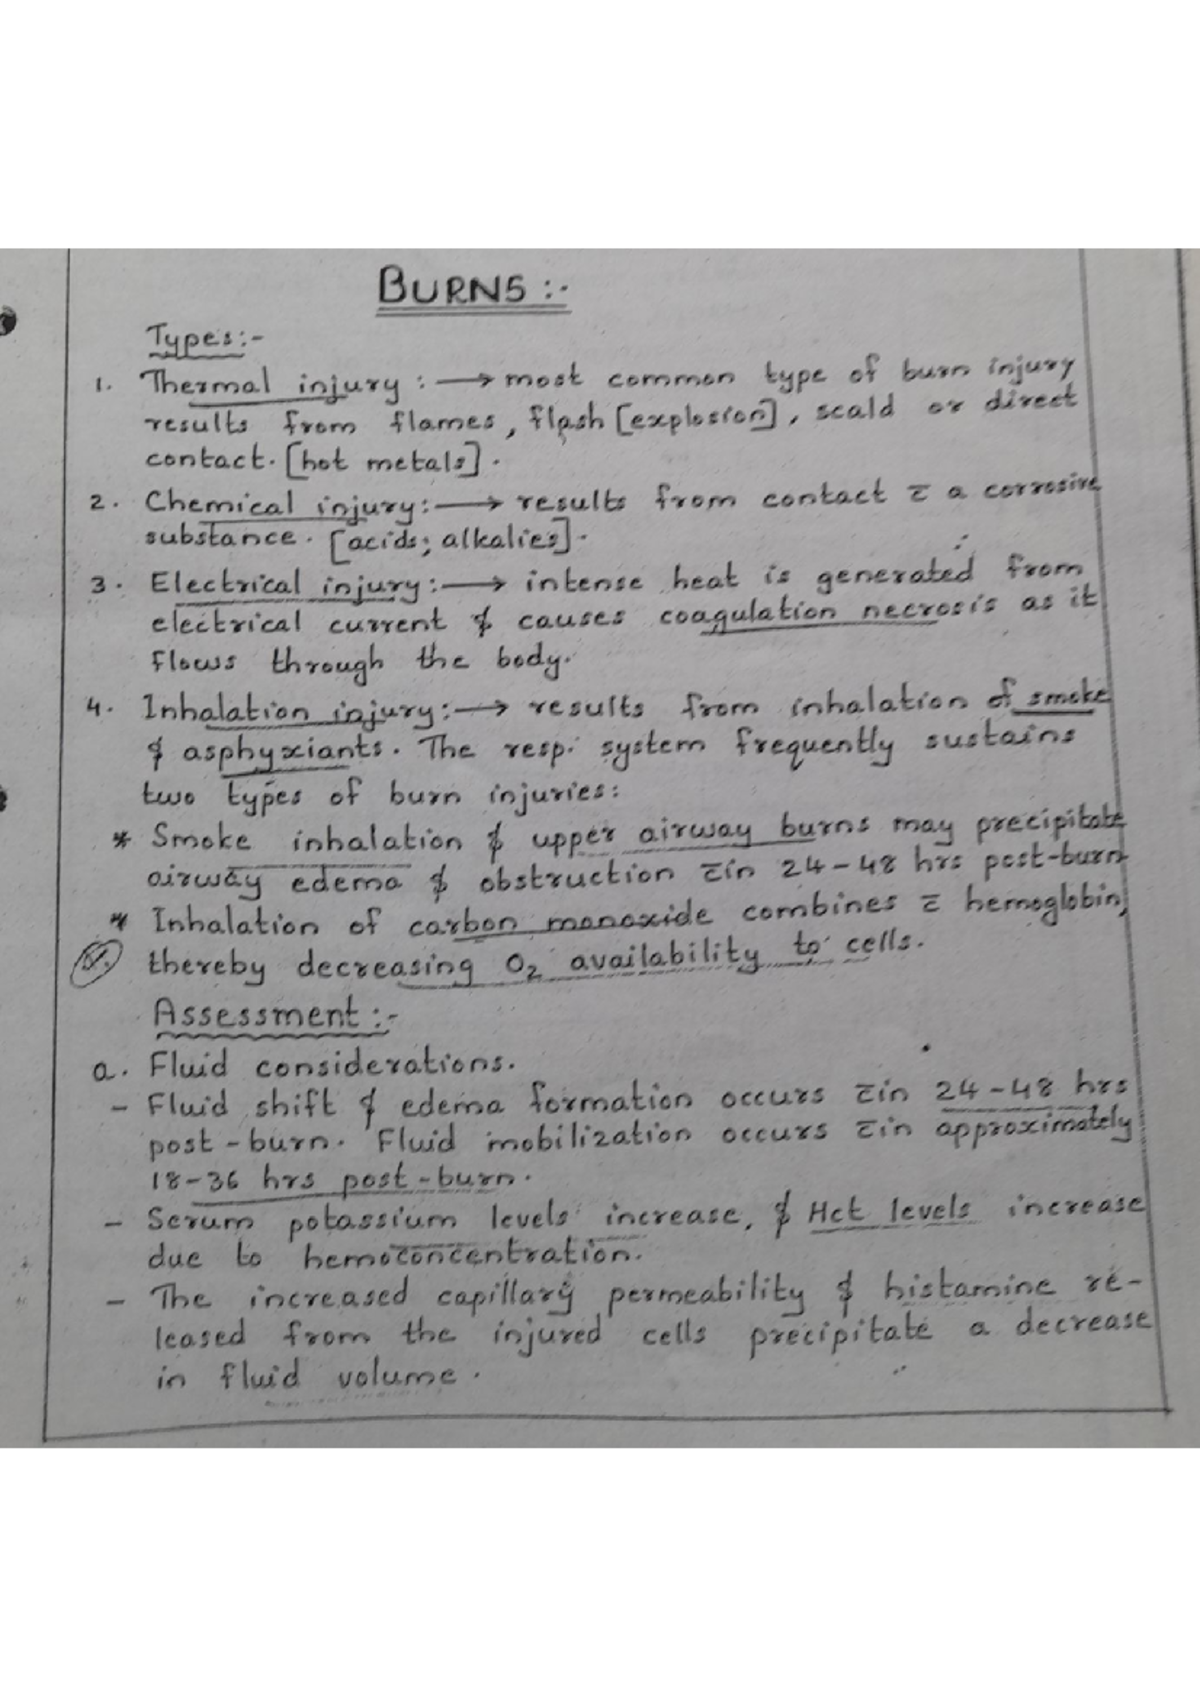 BURNS :-
Types:-
1. Thermal injury : → most common type of burn injury
results from flames, flash [explosion], scald or direct
contact. [hot metals].
2. Chemical injury: → results from contact c̄ a corrosive
substance. [acids; alkalies].
3. Electrical injury: → intense heat is generated from
electrical current & causes coagulation necrosis as it
flows through the body.
4. Inhalation injury: → results from inhalation of smoke
& asphyxiants. The resp. system frequently sustains
two types of burn injuries:
* Smoke inhalation & upper airway burns may precipitate
airway edema & obstruction c̄in 24-48 hrs post-burn
* Inhalation of carbon monoxide combines c̄ hemoglobin,
thereby decreasing O₂ availability to cells.
Assessment :-
a. Fluid considerations.
- Fluid shift & edema formation occurs c̄in 24-48 hrs
post-burn. Fluid mobilization occurs c̄in approximately
18-36 hrs post-burn.
- Serum potassium levels increase, & Hct levels increase
due to hemoconcentration.
- The increased capillary permeability & histamine re-
leased from the injured cells precipitate a decrease
in fluid volume.